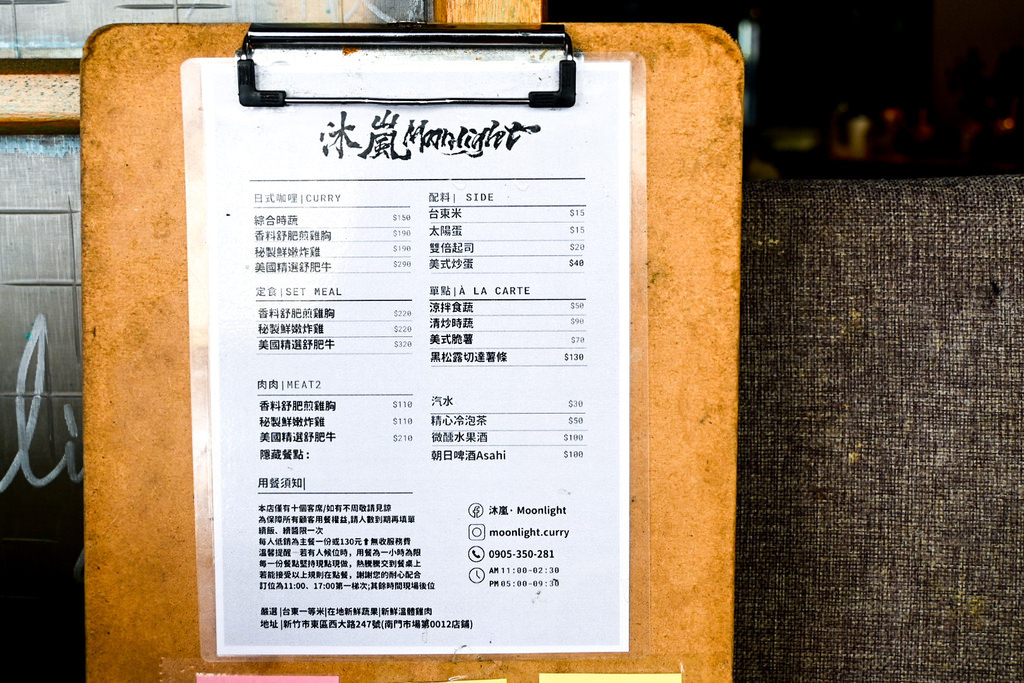 沐嵐Moonlight
日式咖哩|CURRY
綜合時蔬 $150
香料舒肥煎雞胸 $190
秘製鮮嫩炸雞 $190
美國精選舒肥牛 $290
定食|SET MEAL
香料舒肥煎雞胸 $220
秘製鮮嫩炸雞 $220
美國精選舒肥牛 $320
肉肉|MEAT2
香料舒肥煎雞胸 $110
秘製鮮嫩炸雞 $110
美國精選舒肥牛 $210
隱藏餐點:
配料| SIDE
台東米 $15
太陽蛋 $15
雙倍起司 $20
美式炒蛋 $40
單點|À LA CARTE
涼拌食蔬 $50
清炒時蔬 $90
美式脆薯 $70
黑松露切達薯條 $130
汽水 $30
精心冷泡茶 $50
微醺水果酒 $100
朝日啤酒Asahi $100
用餐須知|
本店僅有十個客席/如有不周敬請見諒
為保障所有顧客用餐權益,請人數到期再填單
續飯、續醬限一次
每人低銷為主餐一份或130元⬆無收服務費
溫馨提醒 若有人候位時，用餐為一小時為限
每一份餐點堅持現點現做，熱騰騰交到餐桌上
若能接受以上規則在點餐，謝謝您的耐心配合
訂位為11:00、17:00第一梯次;其餘時間現場後位
沐嵐· Moonlight
moonlight.curry
0905-350-281
AM 11:00-02:30
PM 05:00-09:30
嚴選|台東一等米|在地新鮮蔬果|新鮮溫體雞肉
地址|新竹市東區西大路247號(南門市場第0012店鋪)